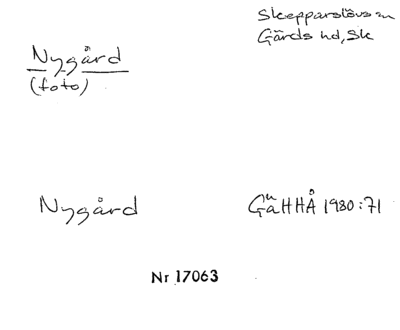 Nygård
(foto)
Skepparslövs sn
Gärds hd, Sk
Nygård
GäHHÅ 1980:71
Nr 17063